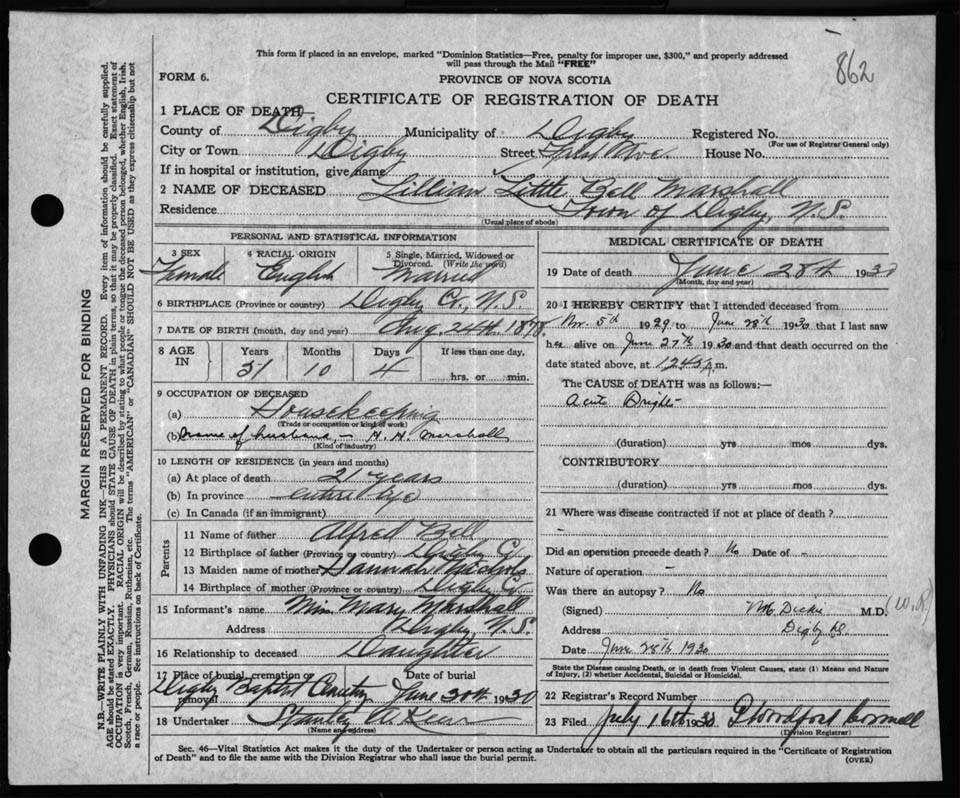 This form if placed in an envelope, marked "Dominion Statistics—Free, penalty for improper use, $300," and properly addressed
will pass through the Mail "FREE"
862
FORM 6.
PROVINCE OF NOVA SCOTIA
CERTIFICATE OF REGISTRATION OF DEATH
1 PLACE OF DEATH—
County of Digby Municipality of Digby Registered No.
(For use of Registrar General only)
City or Town Digby Street First Ave. House No.
If in hospital or institution, give name
2 NAME OF DECEASED Lillian Little Bell Marshall
Residence Town of Digby, N.S.
(Usual place of abode)
PERSONAL AND STATISTICAL INFORMATION
3 SEX 4 RACIAL ORIGIN 5 Single, Married, Widowed or
Divorced. (Write the word)
Female English Married
6 BIRTHPLACE (Province or country) Digby Co., N.S.
7 DATE OF BIRTH (month, day and year) Aug. 24th. 1878.
8 AGE IN Years Months Days If less than one day,
51 10 4 hrs. or min.
9 OCCUPATION OF DECEASED
(a) Housekeeping
(Trade or occupation or kind of work)
(b) Name of husband, - H. H. Marshall
(Kind of industry)
10 LENGTH OF RESIDENCE (in years and months)
(a) At place of death 21 years
(b) In province entire life
(c) In Canada (if an immigrant)
Parents
11 Name of father Alfred Bell
12 Birthplace of father (Province or country) Digby Co
13 Maiden name of mother Hannah Nichols
14 Birthplace of mother (Province or country) Digby Co
15 Informant's name Miss Mary Marshall
Address Digby, N.S.
16 Relationship to deceased Daughter
17 Place of burial, cremation or removal Date of burial
Digby Baptist Cemetery June 30th 1930
18 Undertaker Stanley
(Name and address)
MEDICAL CERTIFICATE OF DEATH
19 Date of death June 28th 1930
(Month, day and year)
20 I HEREBY CERTIFY that I attended deceased from
Nov. 5th 1929 to June 28th 1930 that I last saw
her alive on June 27th 1930 and that death occurred on the
date stated above, at 12.45 A m.
The CAUSE of DEATH was as follows:—
Acute Brights
(duration) yrs mos dys.
CONTRIBUTORY
(duration) yrs mos dys.
21 Where was disease contracted if not at place of death?
Did an operation precede death? No Date of -
Nature of operation -
Was there an autopsy? No
(Signed) Dickie M.D.
Address Digby NS
Date June 28th 1930
State the Disease causing Death, or in death from Violent Causes, state (1) Means and Nature
of Injury, (2) whether Accidental, Suicidal or Homicidal.
22 Registrar's Record Number
23 Filed July 16th 1930
(Division Registrar)
Sec. 46—Vital Statistics Act makes it the duty of the Undertaker or person acting as Undertaker to obtain all the particulars required in the "Certificate of Registration
of Death" and to file the same with the Division Registrar who shall issue the burial permit.
(OVER)
MARGIN RESERVED FOR BINDING
N.B.—WRITE PLAINLY WITH UNFADING INK—THIS IS A PERMANENT RECORD. Every item of information should be carefully supplied.
AGE should be stated EXACTLY. PHYSICIANS should STATE CAUSE OF DEATH in plain terms, so that it may be properly classified. Exact statement of
OCCUPATION is very important. RACIAL ORIGIN will be described by stating to what people or tongue the deceased person belonged, whether English, Irish,
Scotch, French, German, Russian, Ruthenian, etc. The terms "AMERICAN" or "CANADIAN" SHOULD NOT BE USED as they express citizenship but not
a race or people. See instructions on back of Certificate.